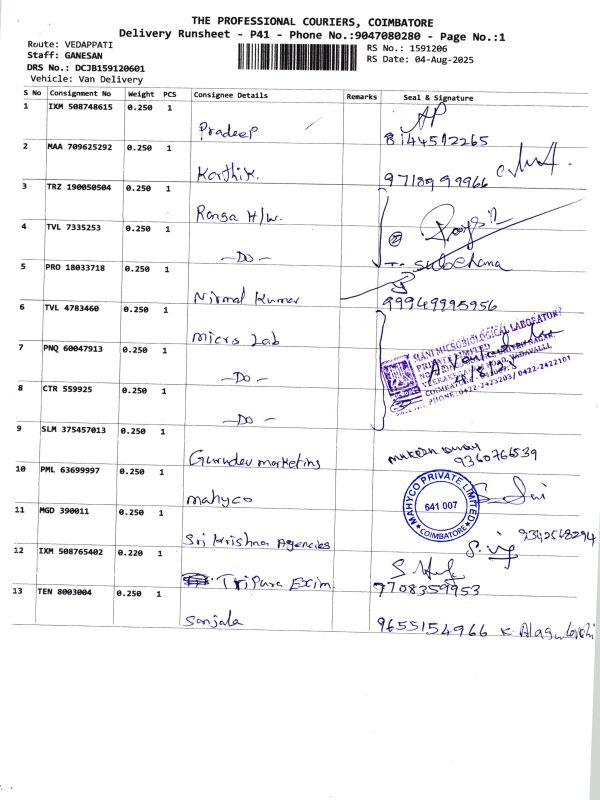 THE PROFESSIONAL COURIERS, COIMBATORE
Delivery Runsheet - P41 - Phone No.:9047080280 - Page No.:1
Route: VEDAPPATI
RS No.: 1591206
Staff: GANESAN
RS Date: 04-Aug-2025
DRS No.: DCJB159120601
Vehicle: Van Delivery
S No Consignment No Weight PCS Consignee Details Remarks Seal & Signature
1 IXM 508748615 0.250 1
Pradeep 8144512265
2 MAA 709625292 0.250 1
Karthik. 9718999966
3 TRZ 190050504 0.250 1
Ranga H/w.
4 TVL 7335253 0.250 1
-Do- Subehana
5 PRO 18033718 0.250 1
Nirmal Kumar 99949995956
6 TVL 4783460 0.250 1
Micro Lab
MANI MICROBIOLOGICAL LABORATORY
PRIVATE LIMITED
7 PNQ 60047913 0.250 1
-Do-
4/8/25
COIMBATORE
PHONE: 0422-2423203/ 0422-2422101
8 CTR 559925 0.250 1
-Do-
9 SLM 375457013 0.250 1
Gurudev marketing
9360766539
10 PML 63699997 0.250 1
mahyco
MAHYCO PRIVATE LIMITED
641 007
COIMBATORE
11 MGD 390011 0.250 1
Sri Krishna Agencies 9342568294
12 IXM 508765402 0.220 1
Tripura Exim 7708359953
13 TEN 8003004 0.250 1
Sanjala 9655154966